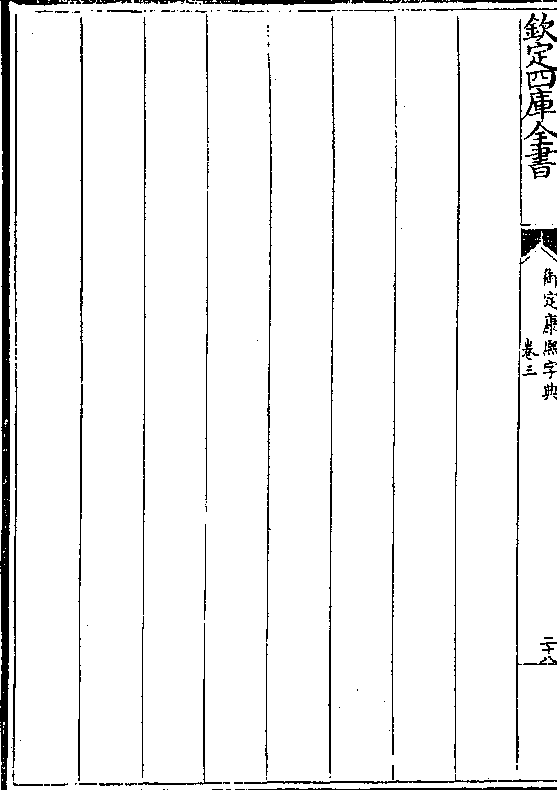 欽定四庫全書
御定康熙字典
卷三
二十八